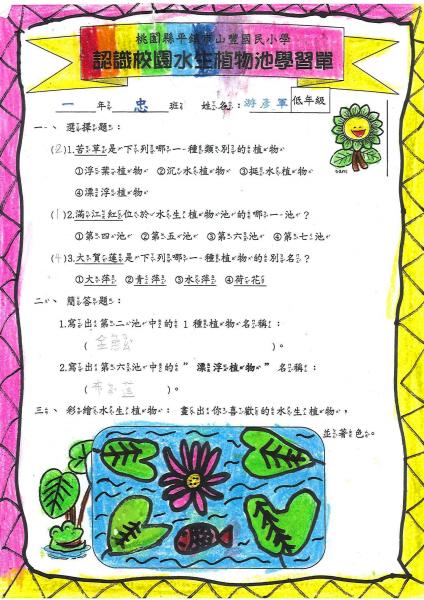 桃園縣平鎮市山豐國民小學
認識校園水生植物池學習單
一年 忠 班 姓名:游彥軍 低年級
一、選擇題:
(2)1.苦草是下列哪一種類別的植物
①浮葉植物 ②沉水植物 ③挺水植物
④漂浮植物
(1)2.滿江紅位於水生植物池的哪一池?
①第四池 ②第五池 ③第六池 ④第七池
(4)3.大賀蓮是下列哪一種植物的別名?
①大萍 ②青萍 ③水萍 ④荷花
二、簡答題:
1.寫出第二池中的1種植物名稱:
( 金魚 )。
2.寫出第六池中的"漂浮植物"名稱:
( 布袋蓮 )。
三、彩繪水生植物:畫出你喜歡的水生植物,
並著色。